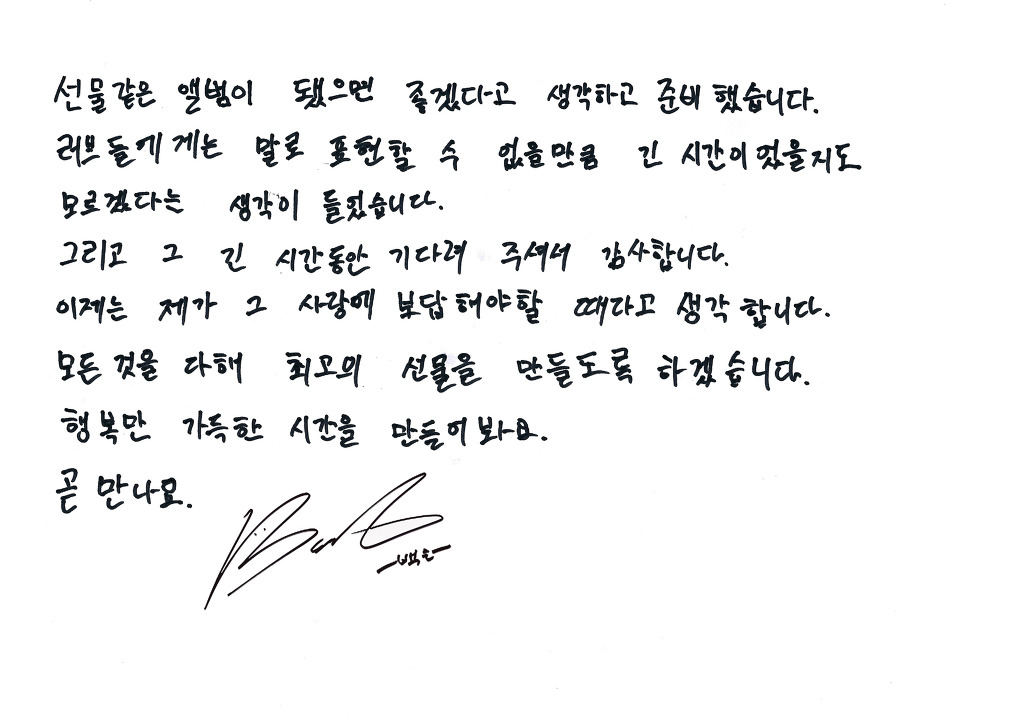 선물같은 앨범이 됐으면 좋겠다고 생각하고 준비했습니다.
러브들에게는 말로 표현할 수 없을만큼 긴 시간이었을지도
모르겠다는 생각이 들었습니다.
그리고 그 긴 시간동안 기다려 주셔서 감사합니다.
이제는 제가 그 사랑에 보답해야할 때다고 생각합니다.
모든 것을 다해 최고의 선물을 만들도록 하겠습니다.
행복만 가득한 시간을 만들어봐요.
곧 만나요.